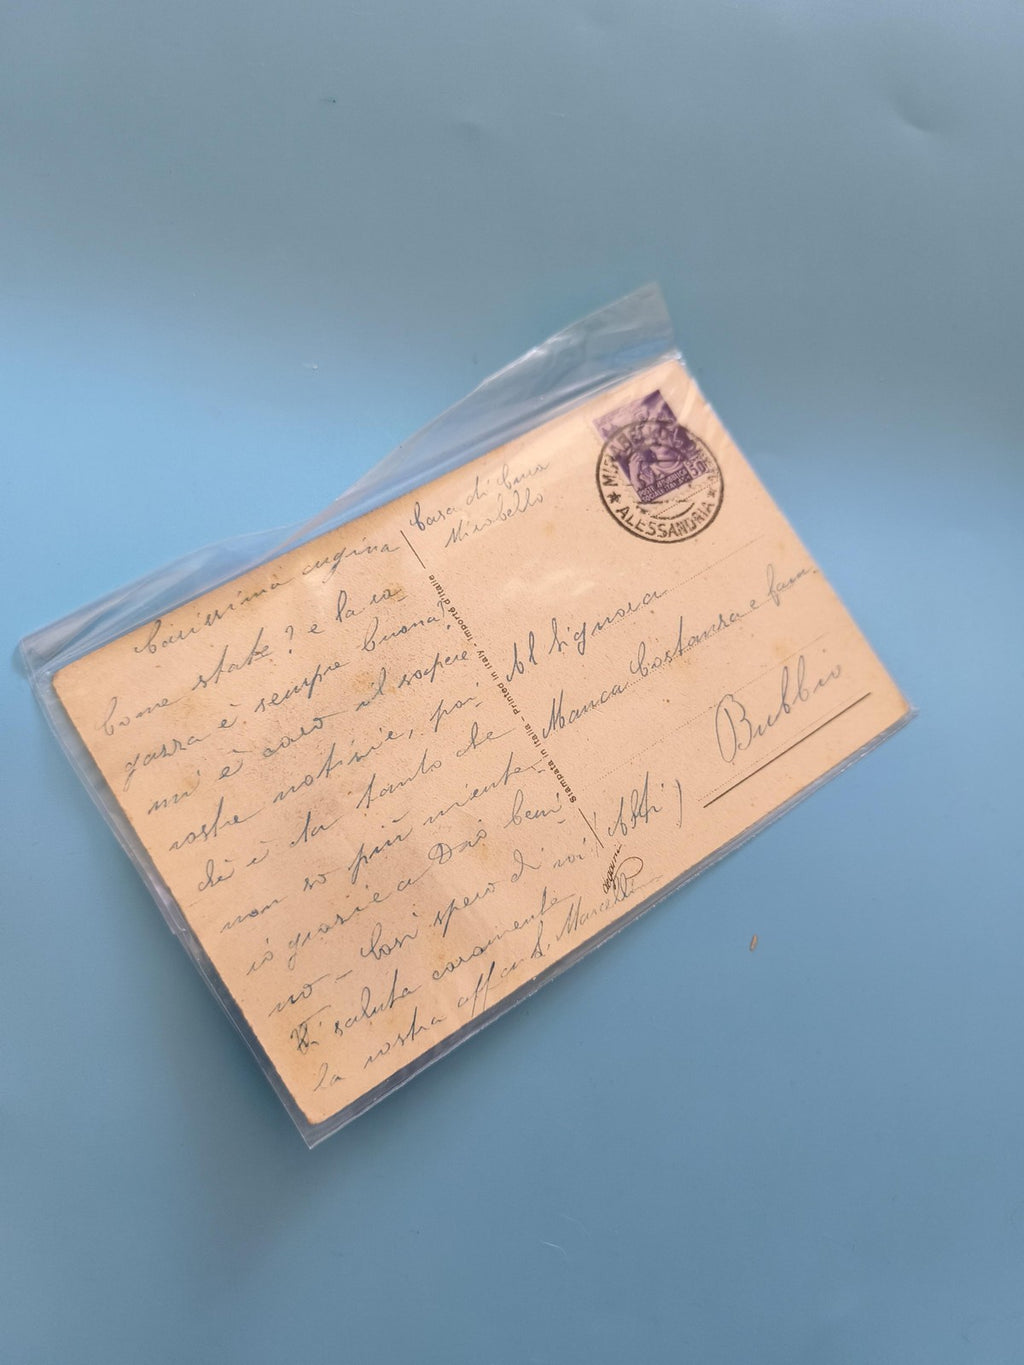 Carissima cugina
Come state? e la ra-
gazza è sempre buona?
mi è caro il sapere
vostre notizie, poi
chè è da tanto che
non so più niente.
io grazie a Dio beni
no - Così spero di voi
Vi saluta caramente
la vostra aff. L. Marcellina
Casa di Cura
Mirabello
MIRABELLO MONF.
★ ALESSANDRIA ★
Al Signora
Manca Costanza e fam.
Bubbio
(Asti)
Stampata in Italia - Printed in Italy - Importé d'Italie